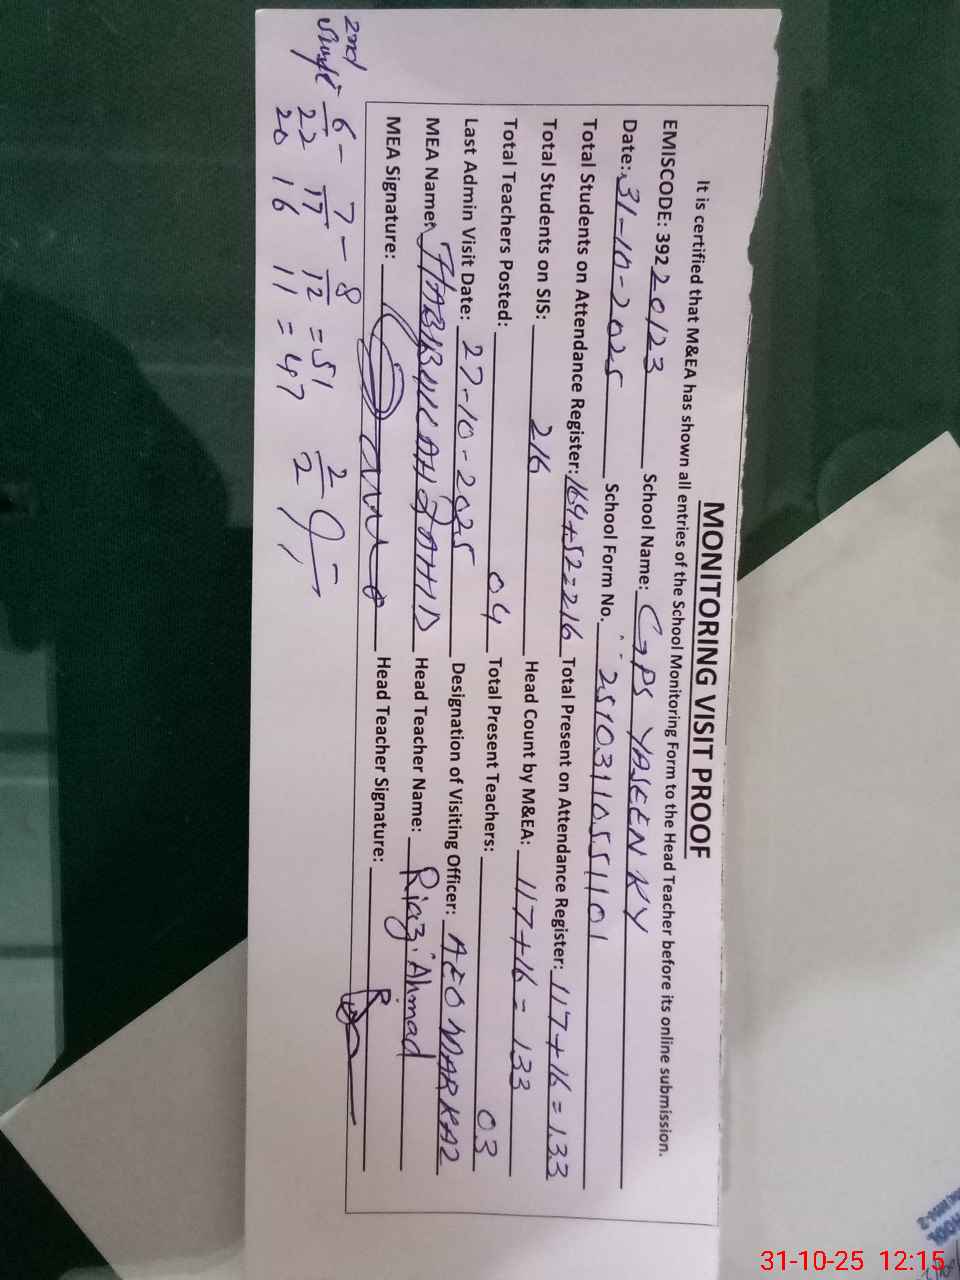 MONITORING VISIT PROOF
It is certified that M&EA has shown all entries of the School Monitoring Form to the Head Teacher before its online submission.
EMISCODE: 39220123 School Name: GPS YASEEN KY
Date: 31-10-2025 School Form No. 25103110551101
Total Students on Attendance Register: 164+52=216 Total Present on Attendance Register: 117+16=133
Total Students on SIS: 216 Head Count by M&EA: 117+16=133
Total Teachers Posted: 04 Total Present Teachers: 03
Last Admin Visit Date: 27-10-2025 Designation of Visiting Officer: AEO MARKAZ
MEA Name: HABIBULLAH ZAHID Head Teacher Name: Riaz Ahmad
MEA Signature: Head Teacher Signature:
2nd
6 - 7 - 8
22 17 12 = 51 2
20 16 11 = 47 2
31-10-25 12:15